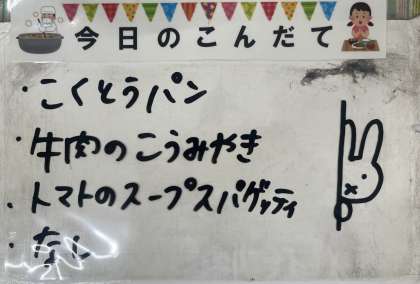 今日のこんだて
・こくとうパン
・牛肉のこうみやき
・トマトのスープスパゲッティ
・なし